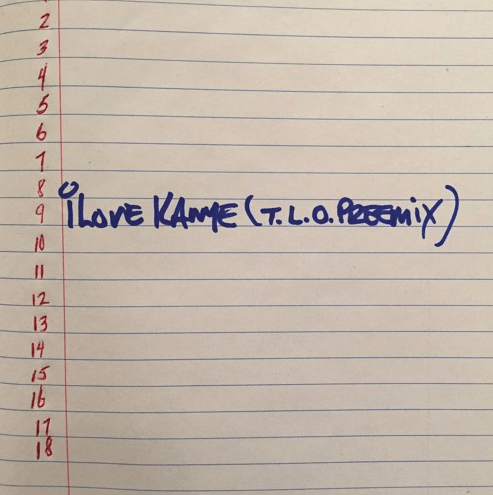 2
3
4
5
6
7
8
9 iLOVE KANYE (T.L.O.PREEMiX)
10
11
12
13
14
15
16
17
18